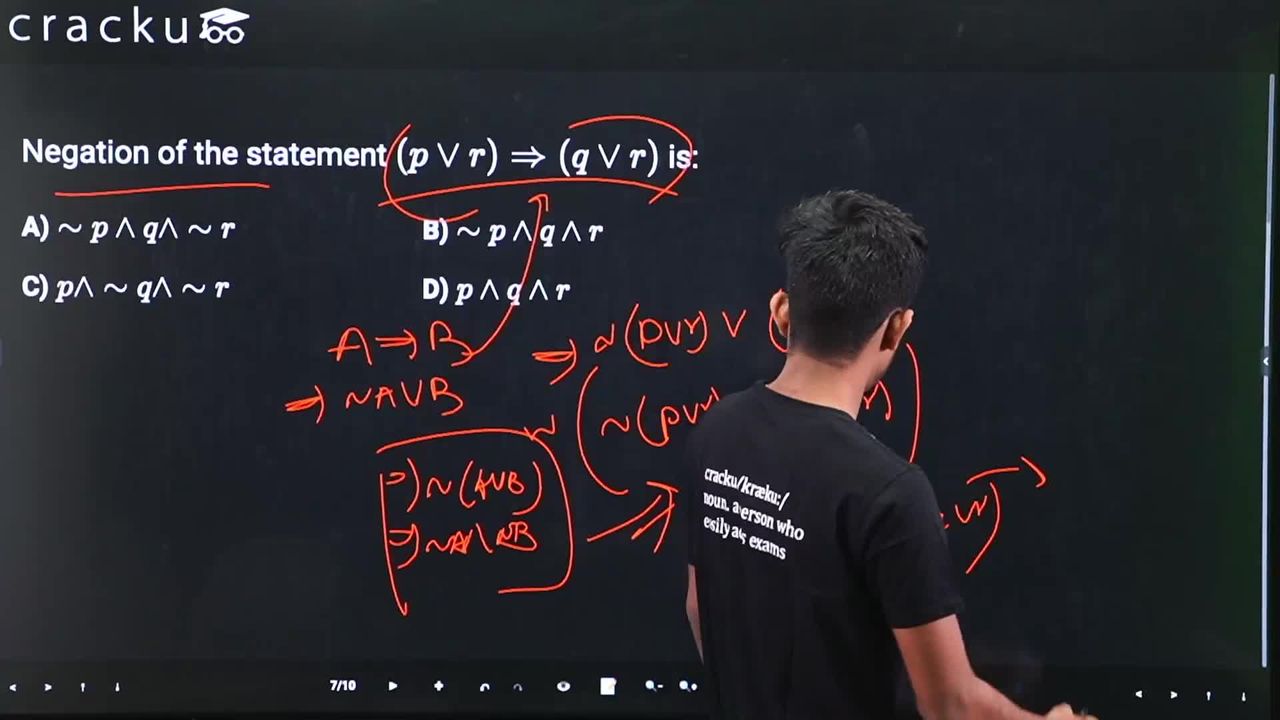 cracku
Negation of the statement (p ∨ r) ⇒ (q ∨ r) is:
A) ~ p ∧ q∧ ~ r
B) ~ p ∧ q ∧ r
C) p∧ ~ q∧ ~ r
D) p ∧ q ∧ r
A ⇒ B
⇒ ~A∨B
⇒ ~(p∨r) ∨
~ ( ~(p∨r)
⇒) ~(A∨B)
⇒) ~A∧~B
∨r)
cracku/kræku:/
noun. a person who
easily aces exams
7/10